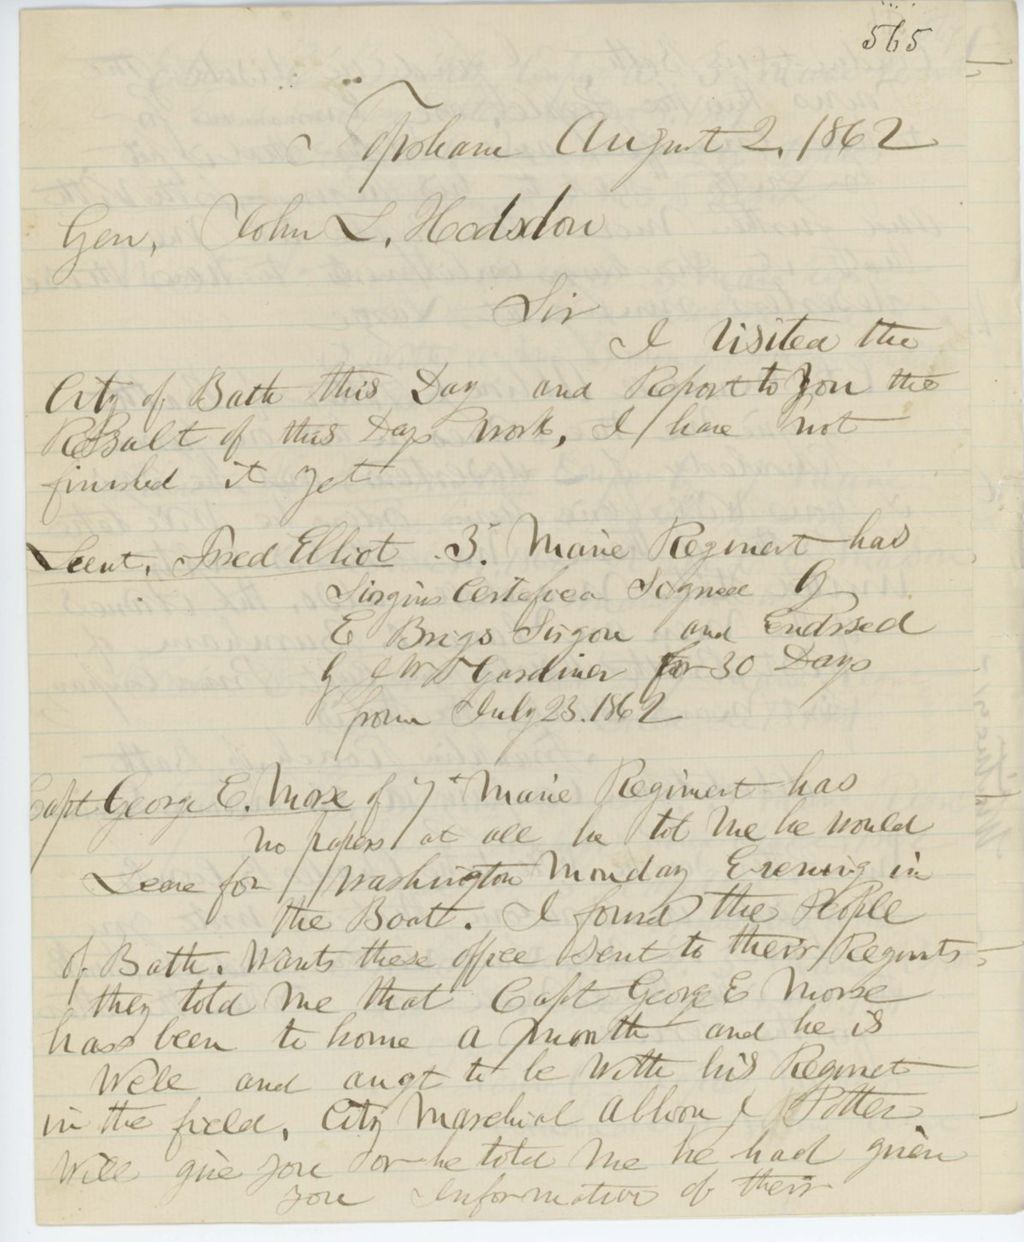 565
Topsham August 2, 1862
Gen, John L, Hodsdon
Sir
I Visited the
City of Bath this Day and Report to You the
ReSult of this Days Work, I have not
finished it yet
Leut, Fred Elliot 3d Maine Regiment has
Sirgins Certefica Signed By
E Brigs Sirgon and Endrsed
By Gardiner for 30 Days
from July 23. 1862
Capt George E. Morse of 7th Maine Regiment has
no papers at all he tol me he would
Leave for Washington Monday Evening in
the Boat. I found the People
of Bath. Wants these offices sent to theirs Regments
they told me that Capt George E Morse
has been to home a month and he is
Well and augt to be With his Regment
in the field, City Marschial J Potter
Will give you or he told me he had given
you Information of their